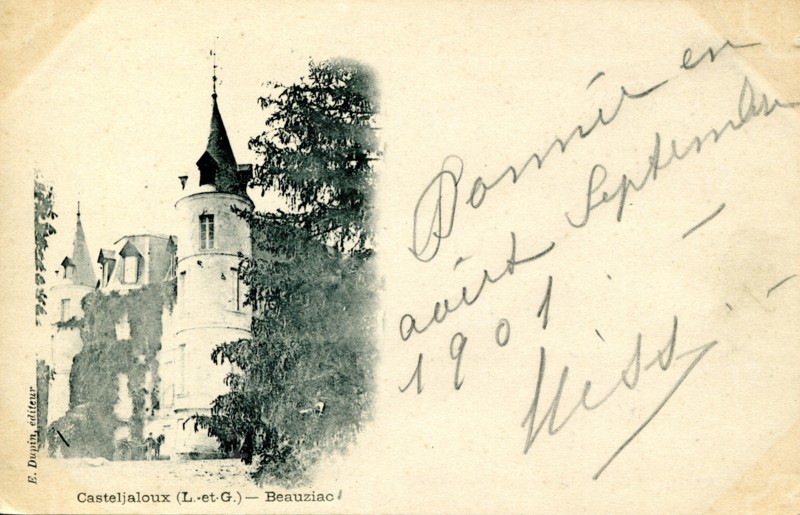 Donnée en
août Septembre
1901.
Miss
E. Dupin, éditeur
Casteljaloux (L.-et-G.) — Beauziac